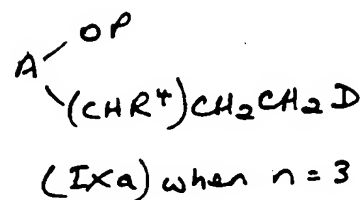 OP
A
(CHR⁴)CH₂CH₂D
(IXa) when n = 3